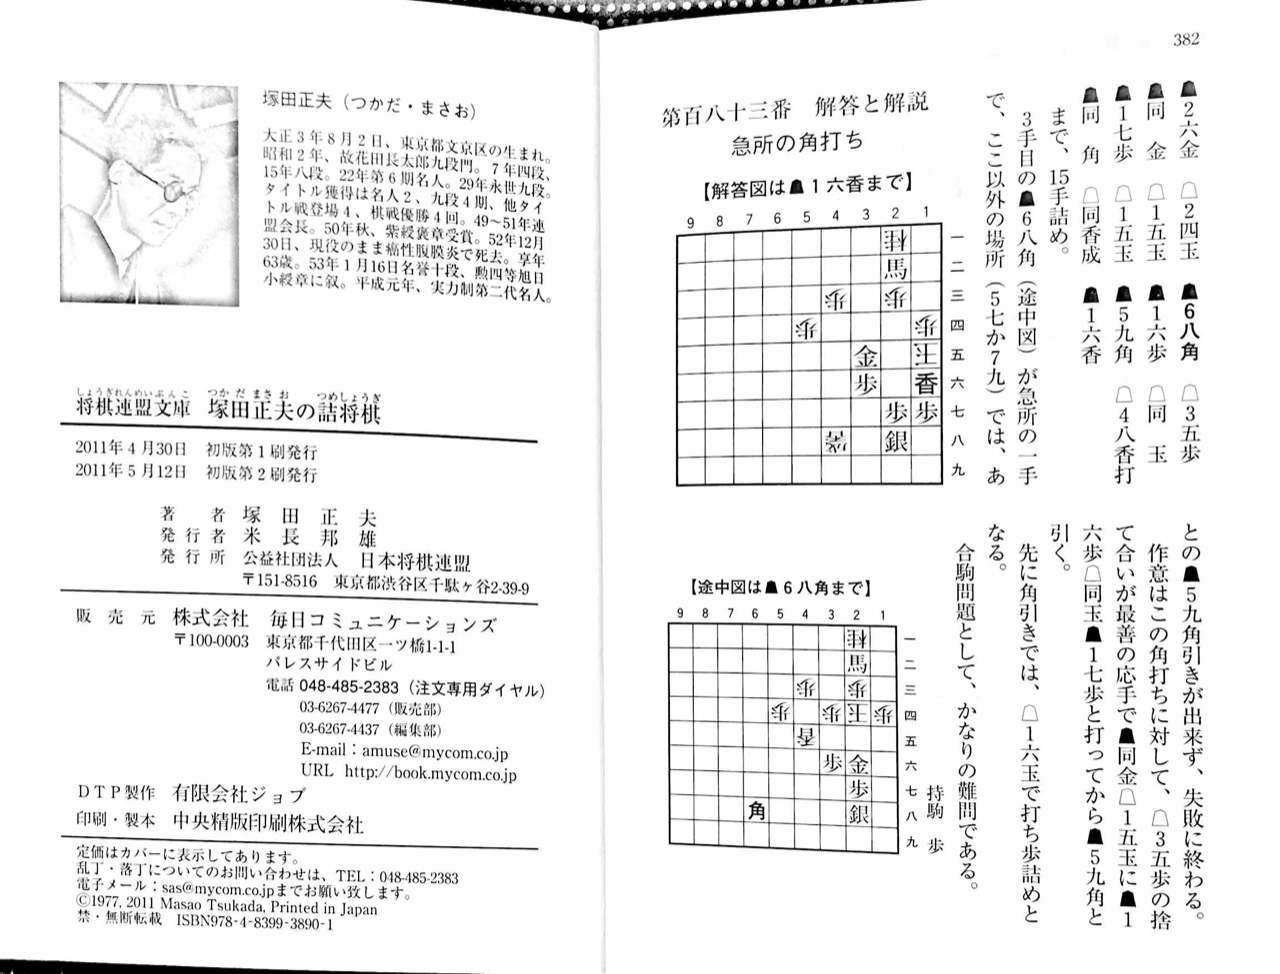 382
☗2六金 ☖2四玉 ☗6八角 ☖3五歩
☗同　金 ☖1五玉 ☗1六歩 ☖同　玉
☗1七歩 ☖1五玉 ☗5九角 ☖4八香打
☗同　角 ☖同香成 ☗1六香
まで、15手詰め。
3手目の☗6八角（途中図）が急所の一手
で、ここ以外の場所（5七か7九）では、あ
との☗5九角引きが出来ず、失敗に終わる。
作意はこの角打ちに対して、☖3五歩の捨
て合いが最善の応手で☗同金☖1五玉に☗1
六歩☖同玉☗1七歩と打ってから☗5九角と
引く。
先に角引きでは、☖1六玉で打ち歩詰めと
なる。
合駒問題として、かなりの難問である。
第百八十三番　解答と解説
急所の角打ち
【解答図は☗1六香まで】
9 8 7 6 5 4 3 2 1
桂 一
馬 二
歩 歩 三
歩 歩 四
金 王 五
歩 香 六
歩 歩 七
銀 八
九
【途中図は☗6八角まで】
9 8 7 6 5 4 3 2 1
桂 一
馬 二
歩 歩 三
歩 歩 王 歩 四
香 五
歩 金 六
歩 七
角 銀 八
九
持駒　歩
塚田正夫（つかだ・まさお）
大正3年8月2日、東京都文京区の生まれ。
昭和2年、故花田長太郎九段門。7年四段、
15年八段。22年第6期名人。29年永世九段。
タイトル獲得は名人2、九段4期、他タイ
トル戦登場4、棋戦優勝4回。49〜51年連
盟会長。50年秋、紫綬褒章受賞。52年12月
30日、現役のまま癌性腹膜炎で死去。享年
63歳。53年1月16日名誉十段、勲四等旭日
小綬章に叙。平成元年、実力制第二代名人。
しょうぎれんめいぶんこ　つかだまさお　つめしょうぎ
将棋連盟文庫　塚田正夫の詰将棋
2011年4月30日　初版第1刷発行
2011年5月12日　初版第2刷発行
著　者　塚田正夫
発行者　米長邦雄
発行所　公益社団法人　日本将棋連盟
〒151-8516　東京都渋谷区千駄ヶ谷2-39-9
販売元　株式会社　毎日コミュニケーションズ
〒100-0003　東京都千代田区一ツ橋1-1-1
パレスサイドビル
電話 048-485-2383（注文専用ダイヤル）
03-6267-4477（販売部）
03-6267-4437（編集部）
E-mail：amuse@mycom.co.jp
URL　http://book.mycom.co.jp
DTP製作　有限会社ジョブ
印刷・製本　中央精版印刷株式会社
定価はカバーに表示してあります。
乱丁・落丁についてのお問い合わせは、TEL：048-485-2383
電子メール：sas@mycom.co.jpまでお願い致します。
©1977, 2011 Masao Tsukada, Printed in Japan
禁・無断転載　ISBN978-4-8399-3890-1